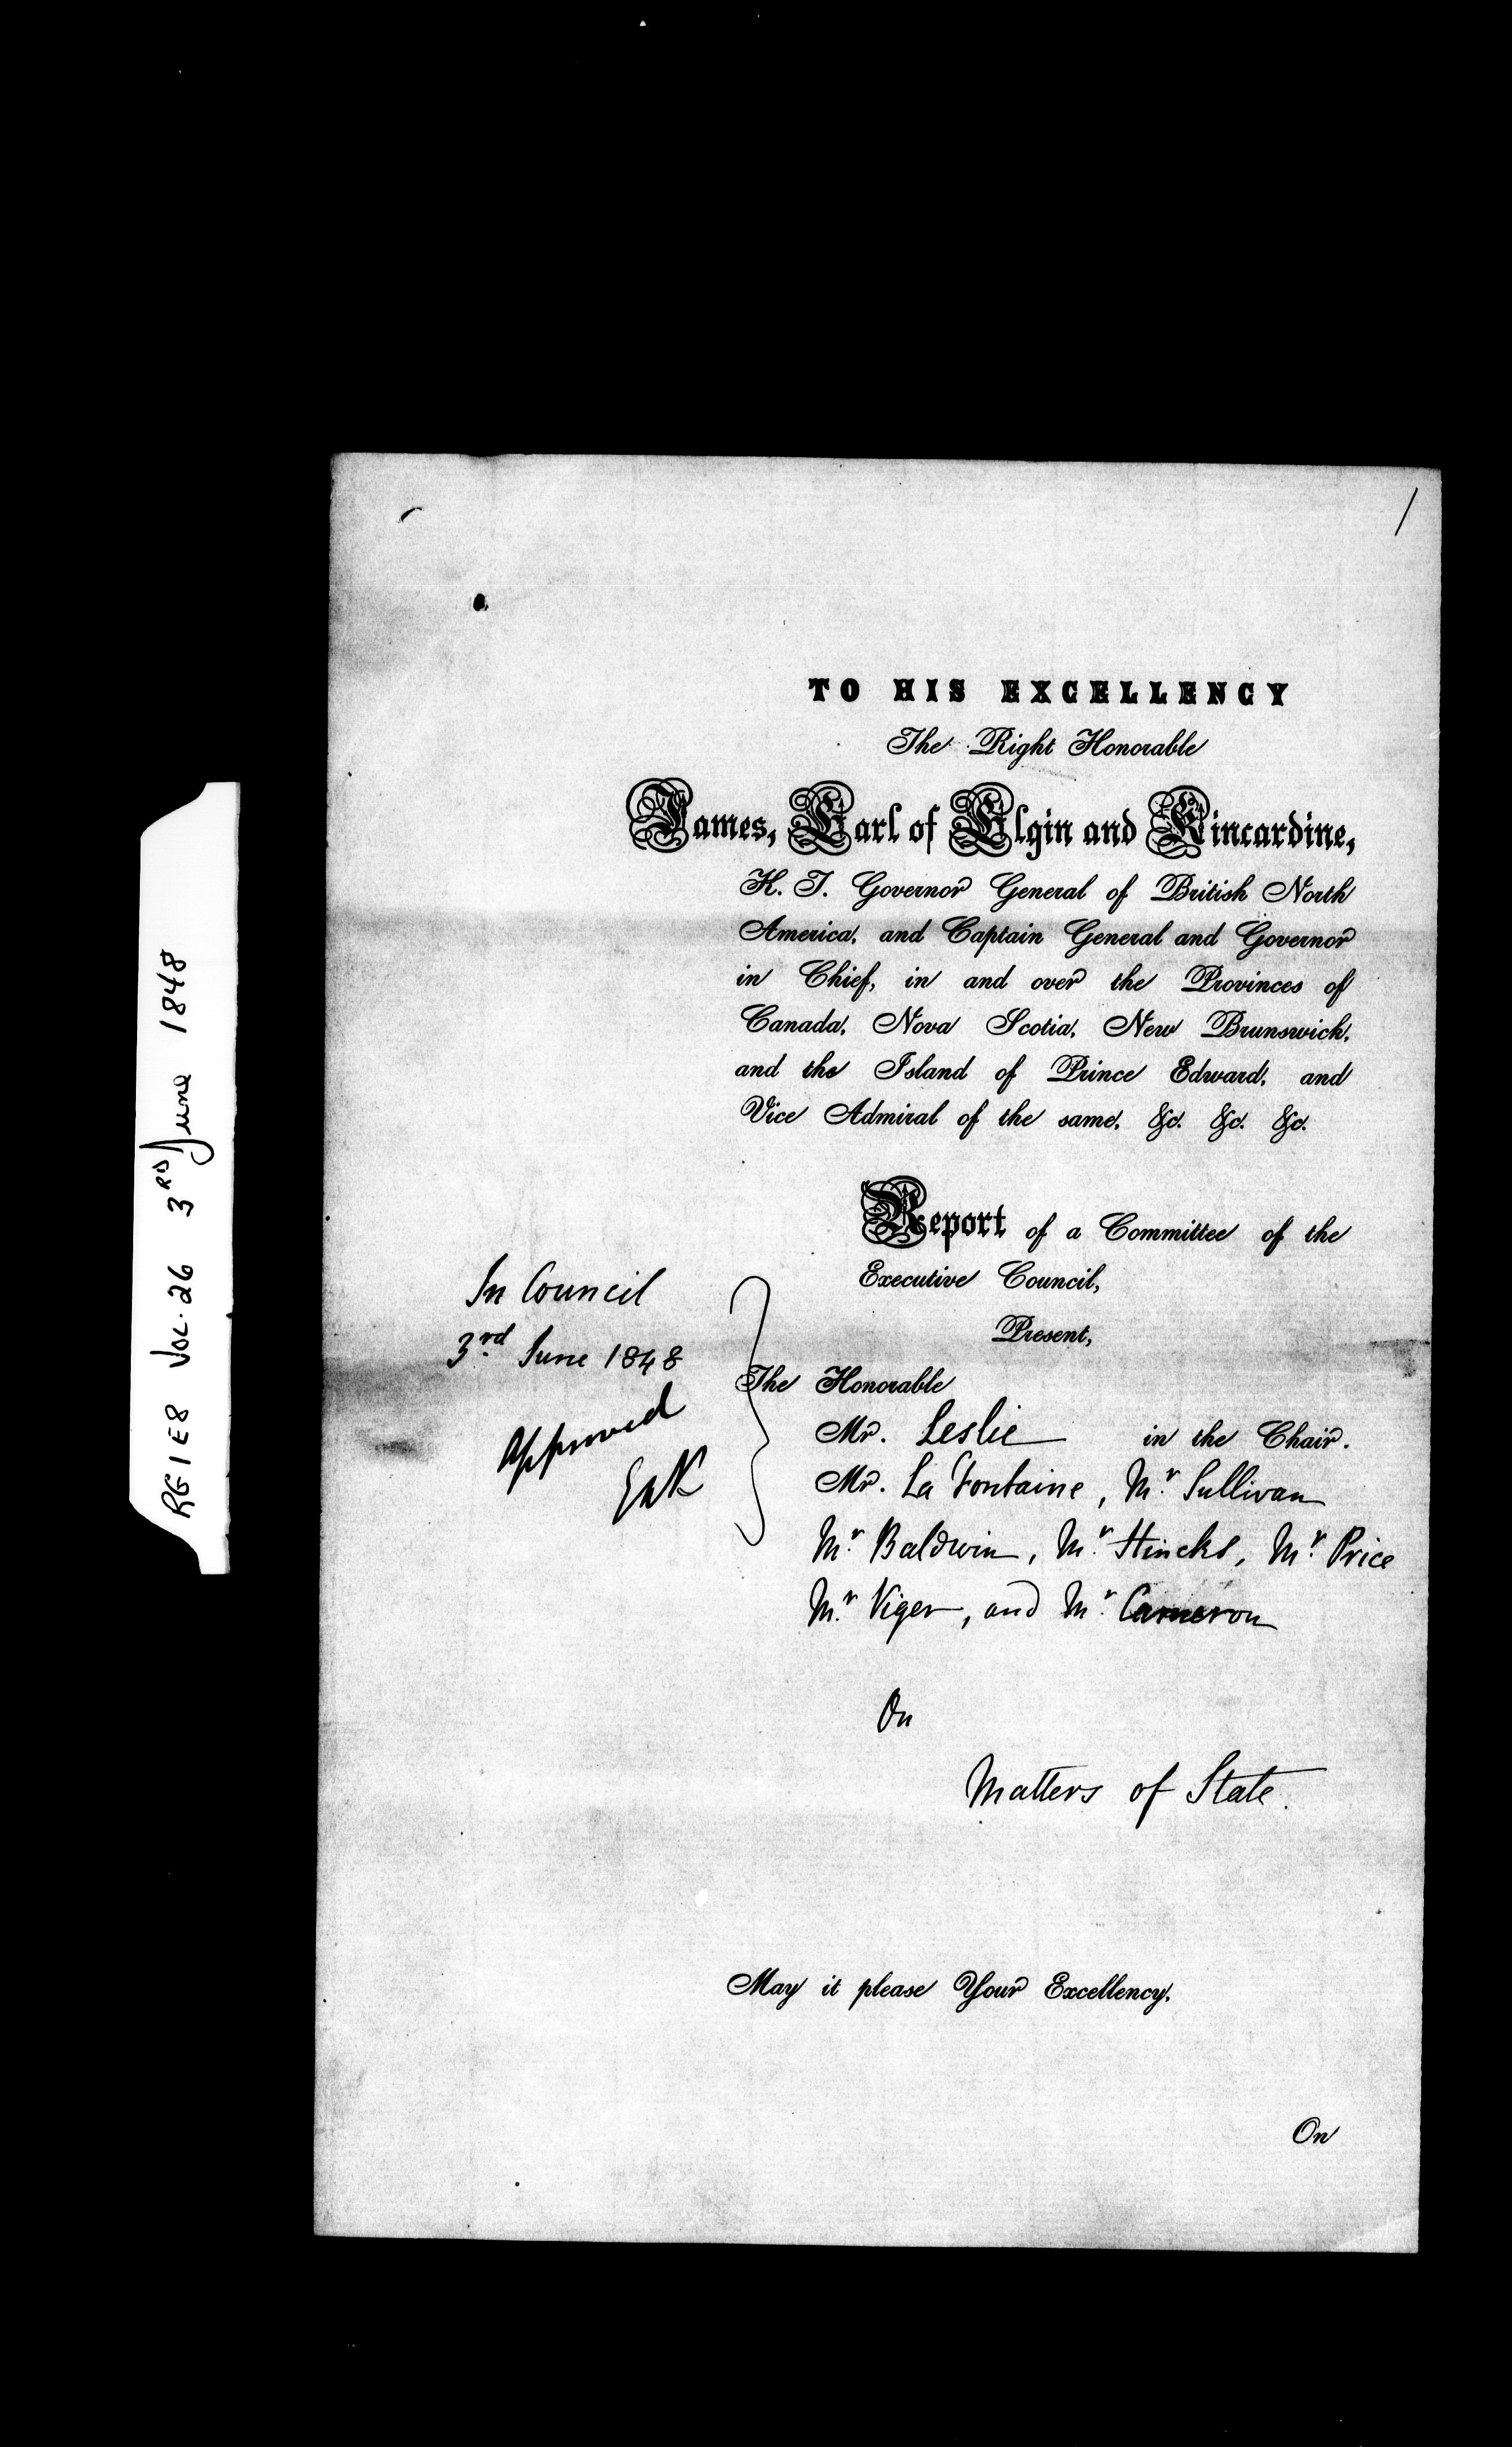 RG 1 E8 VOL. 26 3RD June 1848
/
TO HIS EXCELLENCY
The Right Honorable
James, Earl of Elgin and Kincardine,
K. T. Governor General of British North
America, and Captain General and Governor
in Chief, in and over the Provinces of
Canada, Nova Scotia, New Brunswick,
and the Island of Prince Edward, and
Vice Admiral of the same, &c. &c. &c.
Report of a Committee of the
Executive Council,
Present,
In Council
3rd June 1848
Approved
E&K
The Honorable
Mr. Leslie in the Chair.
Mr. La Fontaine, Mr. Sullivan
Mr. Baldwin, Mr. Hincks, Mr. Price
Mr. Viger, and Mr. Cameron
On
Matters of State.
May it please Your Excellency,
On